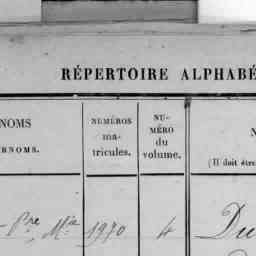 RÉPERTOIRE ALPHABÉ
NOMS
RNOMS.
NUMÉROS
ma-
tricules.
NU-
MÉRO
du
volume.
N
(Il doit être
Pre Mie 1970 4 Du